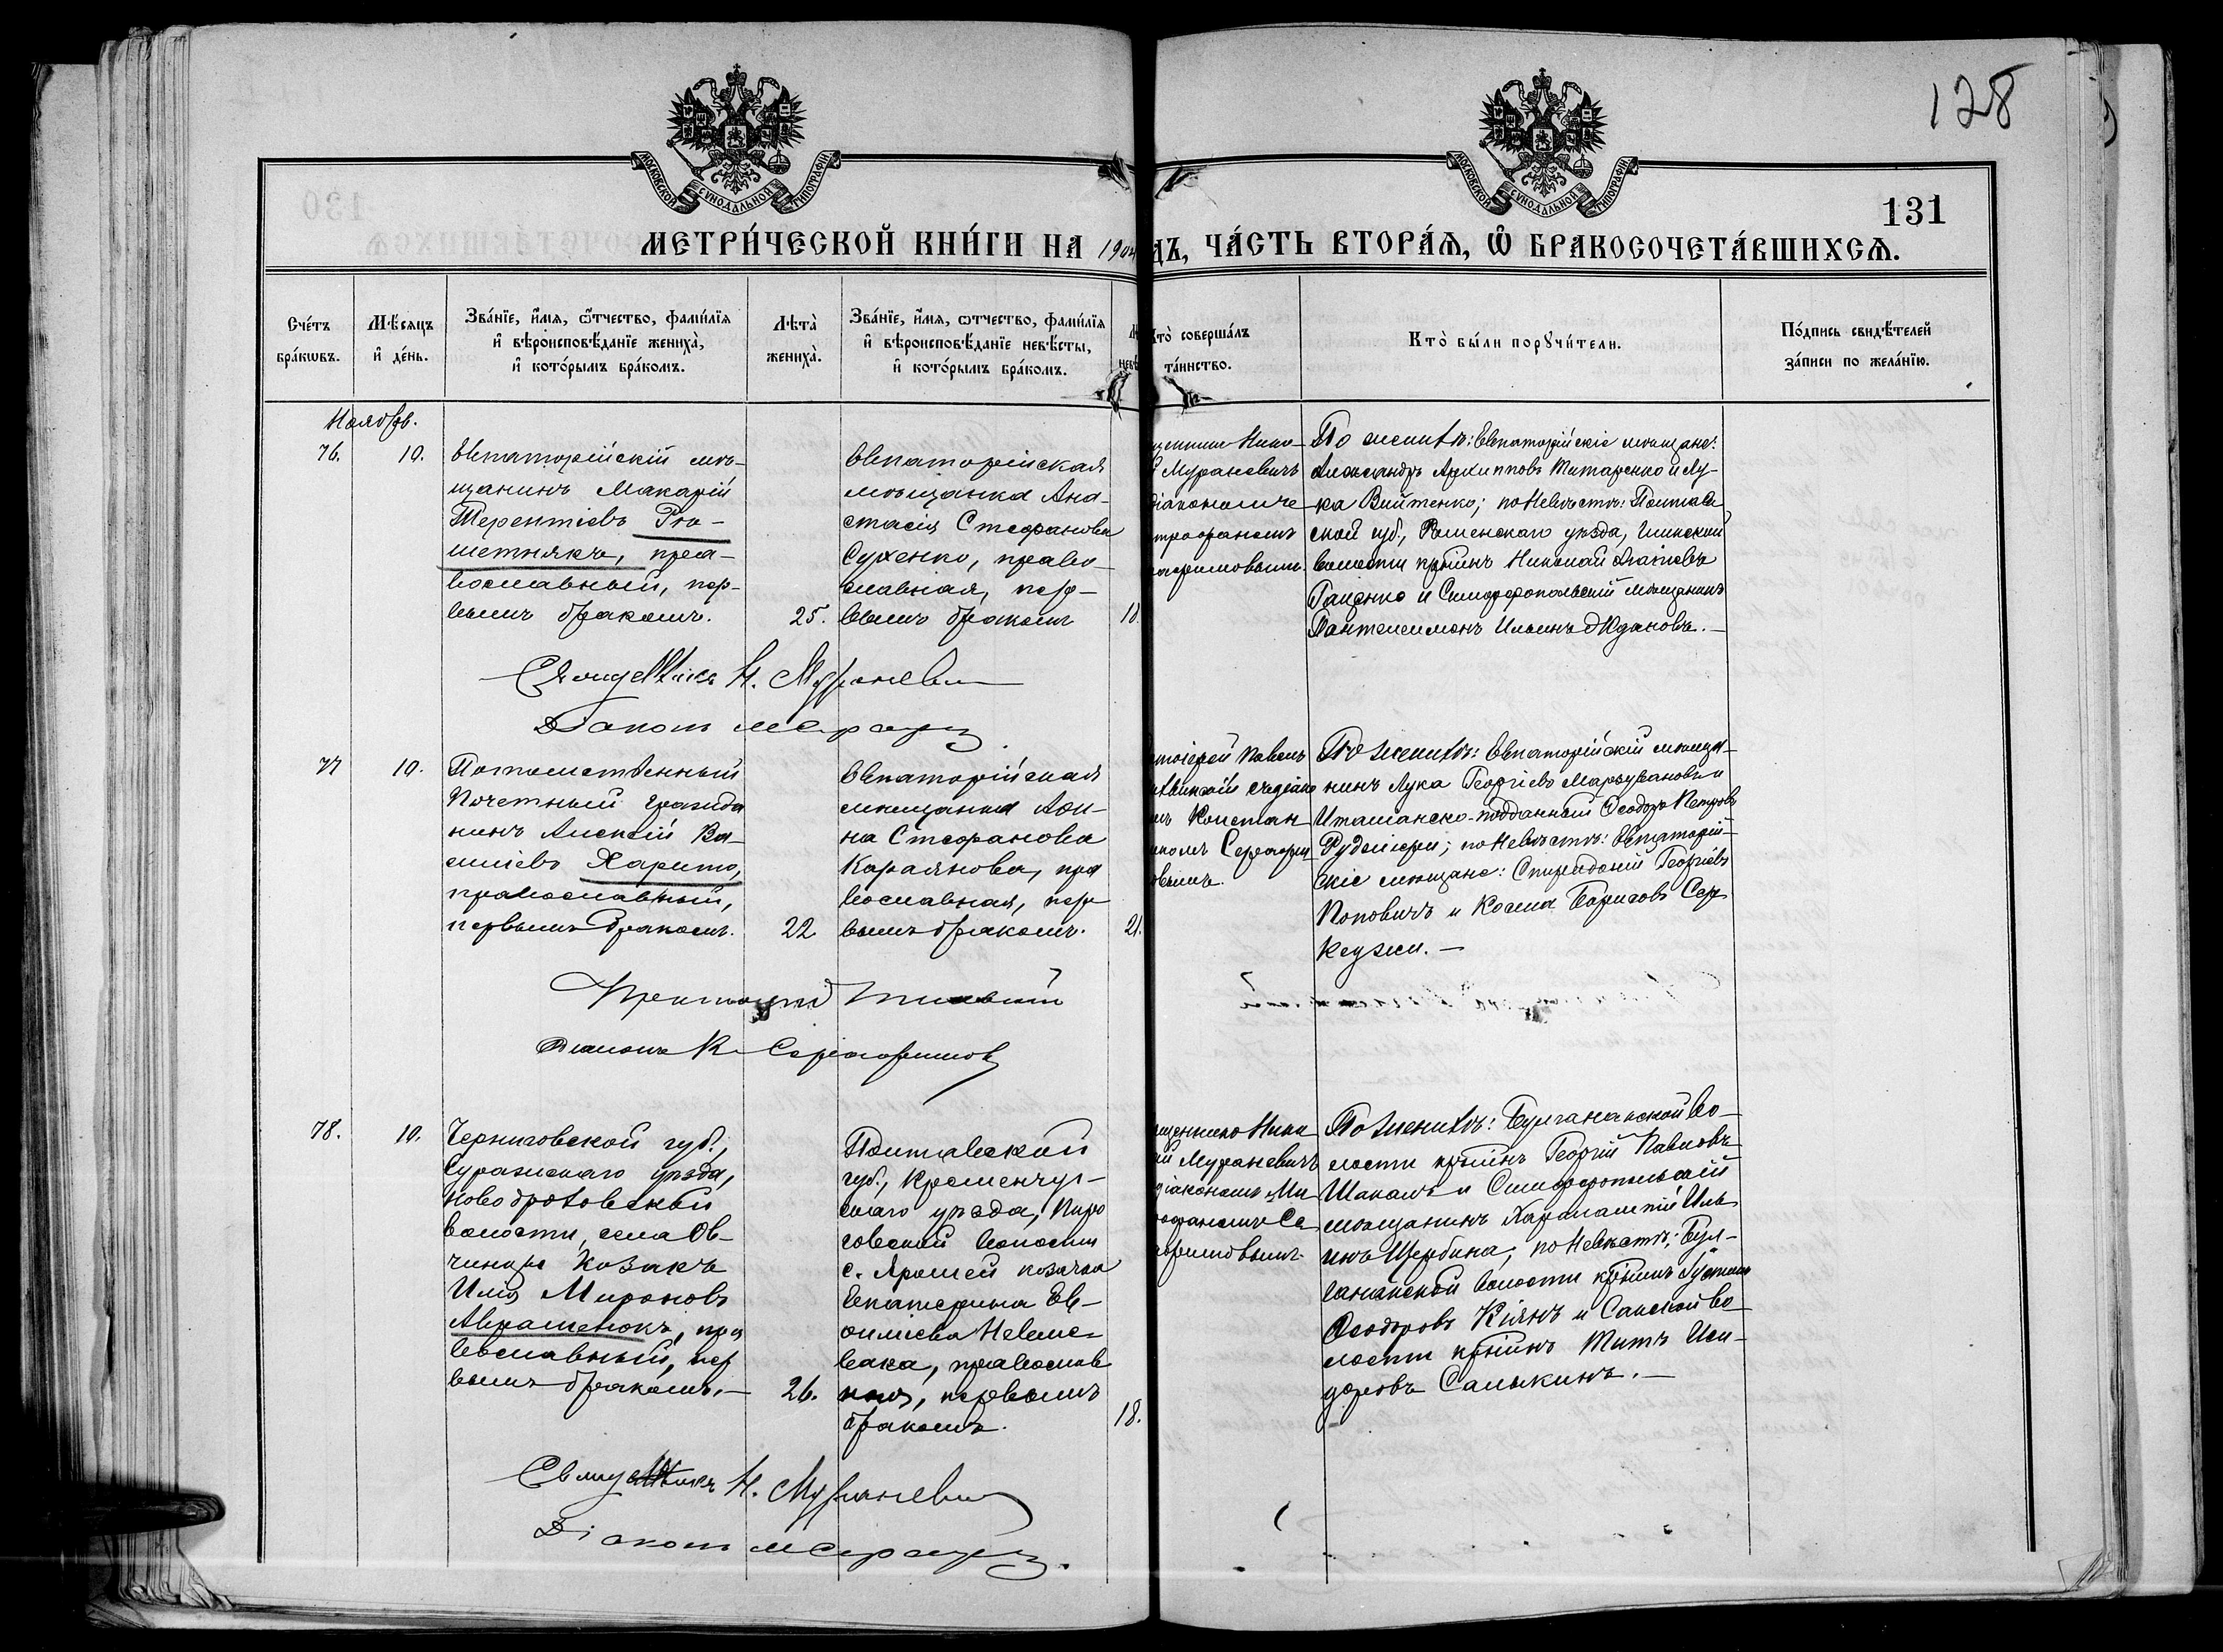 128
131
МОСКОВСКОЙ СѴНОДАЛЬНОЙ ТИПОГРАФІИ
МОСКОВСКОЙ СѴНОДАЛЬНОЙ ТИПОГРАФІИ
МЕТРИ́ЧЕСКОЙ КНИ́ГИ НА 1904
ДЪ, ЧА́СТЬ ВТОРА́Ѧ, Ѡ БРАКОСОЧЕТА́ВШИХСѦ.
Сче́тъ
бра́кѡвъ.
Мѣ́сяцъ
и҆ де́нь.
Зва́нїе, и҆́мя, ѻ҆́тчество, фами́лїя
и҆ вѣроисповѣ́данїе жениха̀,
и҆ кото́рымъ бра́комъ.
Лѣта̀
жениха̀.
Зва́нїе, и҆́мя, ѻ҆́тчество, фами́лїя
и҆ вѣроисповѣ́данїе невѣ́сты,
и҆ кото́рымъ бра́комъ.
невѣ
то̀ соверша́лъ
та́инство.
Кто̀ бы́ли порꙋчи́тели.
По́дпись свидѣ́телей
за́писи по жела́нїю.
Ноябрь.
76.
10.
Евпаторійскій мѣ-
щанинъ Макарій
Терентіевъ Рѣ-
шетнякъ, пра-
вославный, пер-
вымъ бракомъ.
25.
Евпаторійская
мѣщанка Ана-
стасія Стефанова
Сухенко, право-
славная, пер-
вымъ бракомъ
18.
щенникъ Нико-
й Мураневичъ
діакономъ Ми
трофаномъ
рафимовымъ.
По женихѣ: Евпаторійскіе мѣщане:
Александръ Архипповъ Титаренко и Лу-
ка Войтенко; по невѣстѣ: Полтав
ской губ., Роменскаго уѣзда,
волости крᲇнинъ Николай
Гаценко и Симферопольскій мѣщанинъ
Пантелеимонъ Ильинъ Ждановъ.—
Священникъ Н. Мураневичъ
Діаконъ М Серафим
77
10.
Потомственный
Почетный гражда
нинъ Алексѣй Ва-
силіевъ Харито,
православный,
первымъ бракомъ.
22
Евпаторійская
мѣщанка Ан-
на Стефанова
Караянова, пра
вославная, пер
вымъ бракомъ.
21.
тоіерей Павелъ
съ діако
мъ Констан
Серафим
овымъ.
По женихѣ: Евпаторійскій мѣща-
нинъ Лука Георгіевъ Марзувановъ и
Итальянско-подданный Ѳеодоръ Петровъ
по невѣстѣ: Евпаторій-
скіе мѣщане: Спиридоній Георгіевъ
Поповичъ и Косма Борисовъ Сер
Протоіерей
Діаконъ К Серафимовъ
78.
10.
Черниговской губ.,
Суражскаго уѣзда,
Новодроковской
волости, села Ов-
чинца козакъ
Илія Мироновъ
Авраменокъ, пра
вославный, пер
вымъ бракомъ.—
26.
Полтавской
губ., Кременчуг-
скаго уѣзда, Пиро
говской волости
с. Ярошей козачка
Екатерина Ев-
фиміева
православ
ная, первымъ
бракомъ.
18.
щенникъ Нико
ай Мураневичъ
діакономъ Ми
рофаномъ Се
афимовымъ.
По женихѣ: Булганакской во-
лости Георгій Павловъ
Шакалъ и Симферопольскій
мѣщанинъ Харлампій Иль
инъ Щербина; по невѣстѣ: Бул-
ганакской волости
Ѳеодоровъ Кіянъ и Сакской во
лости Титъ Иси-
доровъ Салыкинъ.—
Священникъ Н. Мураневичъ
Діаконъ М Серафим